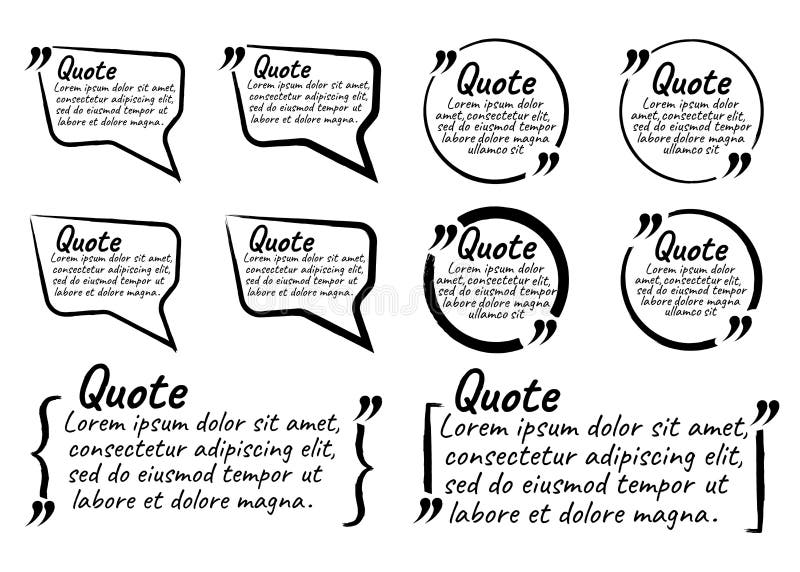 Quote
Lorem ipsum dolor sit amet,
consectetur adipiscing elit,
sed do eiusmod tempor ut
labore et dolore magna.
Quote
Lorem ipsum dolor sit amet,
consectetur adipiscing elit,
sed do eiusmod tempor ut
labore et dolore magna.
Quote
Lorem ipsum dolor sit
amet, consectetur adipiscing elit,
sed do eiusmod tempor ut
labore et dolore magna
ullamco sit
Quote
Lorem ipsum dolor sit
amet, consectetur adipiscing elit,
sed do eiusmod tempor ut
labore et dolore magna
ullamco sit
Quote
Lorem ipsum dolor sit amet,
consectetur adipiscing elit,
sed do eiusmod tempor ut
labore et dolore magna.
Quote
Lorem ipsum dolor sit amet,
consectetur adipiscing elit,
sed do eiusmod tempor ut
labore et dolore magna.
Quote
Lorem ipsum dolor sit
amet, consectetur adipiscing elit,
sed do eiusmod tempor ut
labore et dolore magna
ullamco sit
Quote
Lorem ipsum dolor sit
amet, consectetur adipiscing elit,
sed do eiusmod tempor ut
labore et dolore magna
ullamco sit
Quote
Lorem ipsum dolor sit amet,
consectetur adipiscing elit,
sed do eiusmod tempor ut
labore et dolore magna.
Quote
Lorem ipsum dolor sit amet,
consectetur adipiscing elit,
sed do eiusmod tempor ut
labore et dolore magna.